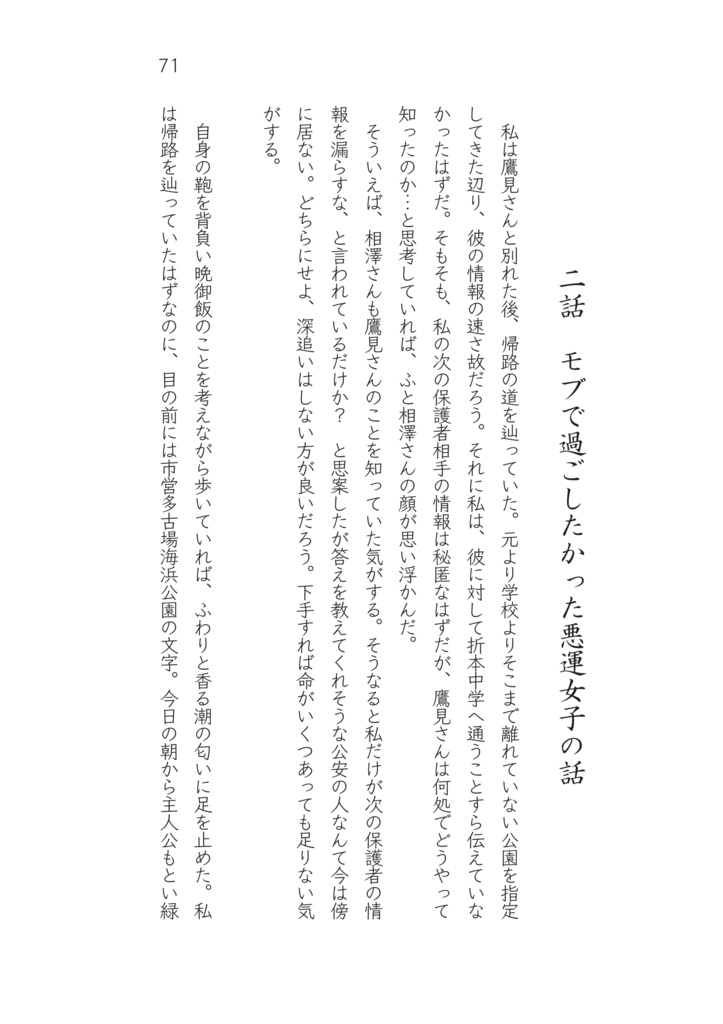 71
二話　モブで過ごしたかった悪運女子の話
　私は鷹見さんと別れた後、帰路の道を辿っていた。元より学校よりそこまで離れていない公園を指定
してきた辺り、彼の情報の速さ故だろう。それに私は、彼に対して折本中学へ通うことすら伝えていな
かったはずだ。そもそも、私の次の保護者相手の情報は秘匿なはずだが、鷹見さんは何処でどうやって
知ったのか…と思考していれば、ふと相澤さんの顔が思い浮かんだ。
　そういえば、相澤さんも鷹見さんのことを知っていた気がする。そうなると私だけが次の保護者の情
報を漏らすな、と言われているだけか？　と思案したが答えを教えてくれそうな公安の人なんて今は傍
に居ない。どちらにせよ、深追いはしない方が良いだろう。下手すれば命がいくつあっても足りない気
がする。
　自身の鞄を背負い晩御飯のことを考えながら歩いていれば、ふわりと香る潮の匂いに足を止めた。私
は帰路を辿っていたはずなのに、目の前には市営多古場海浜公園の文字。今日の朝から主人公もとい緑